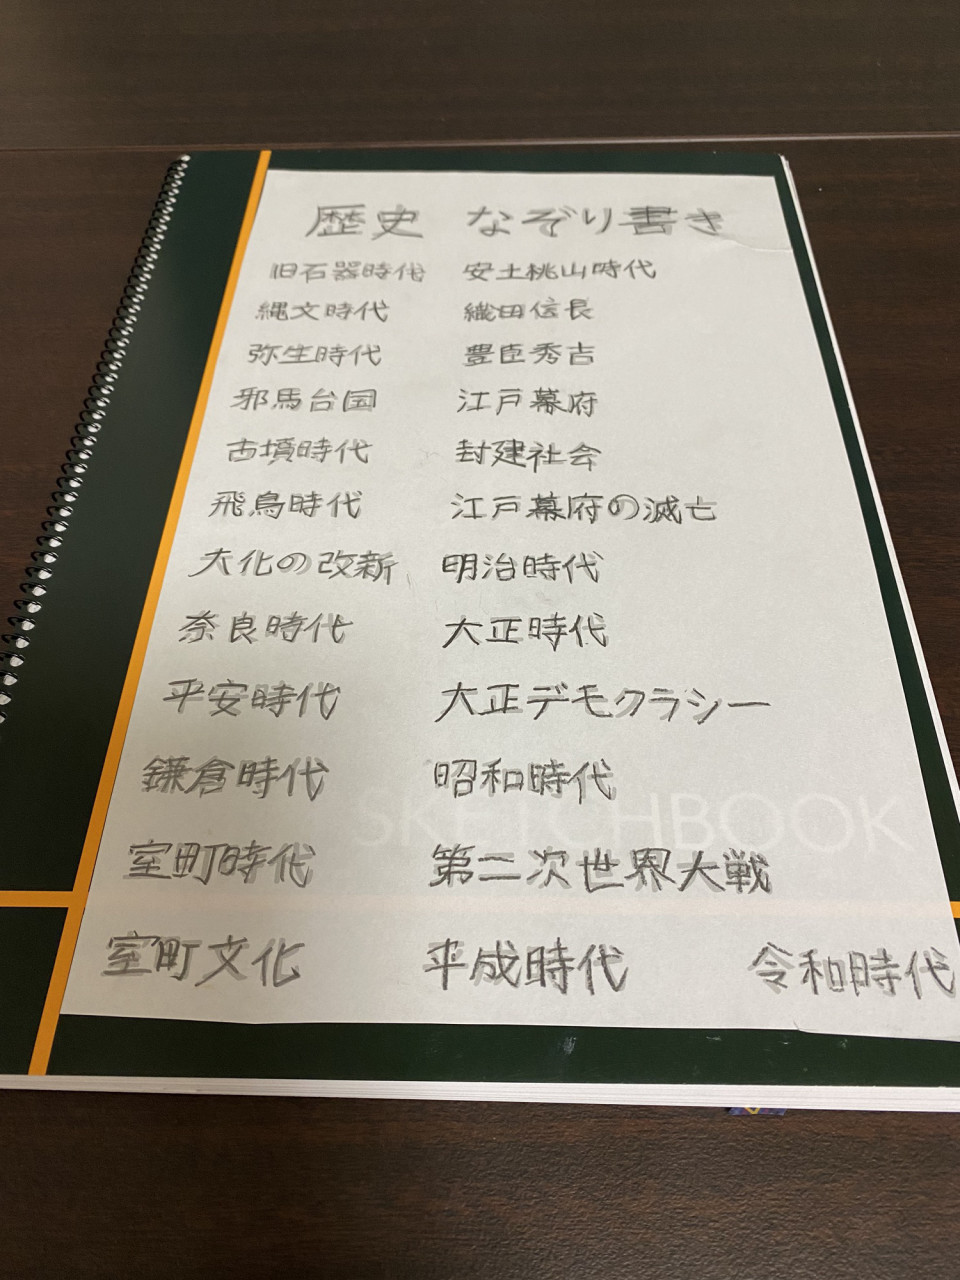 歴史 なぞり書き
旧石器時代
縄文時代
弥生時代
邪馬台国
古墳時代
飛鳥時代
大化の改新
奈良時代
平安時代
鎌倉時代
室町時代
室町文化
安土桃山時代
織田信長
豊臣秀吉
江戸幕府
封建社会
江戸幕府の滅亡
明治時代
大正時代
大正デモクラシー
昭和時代
第二次世界大戦
平成時代
令和時代
SKETCHBOOK